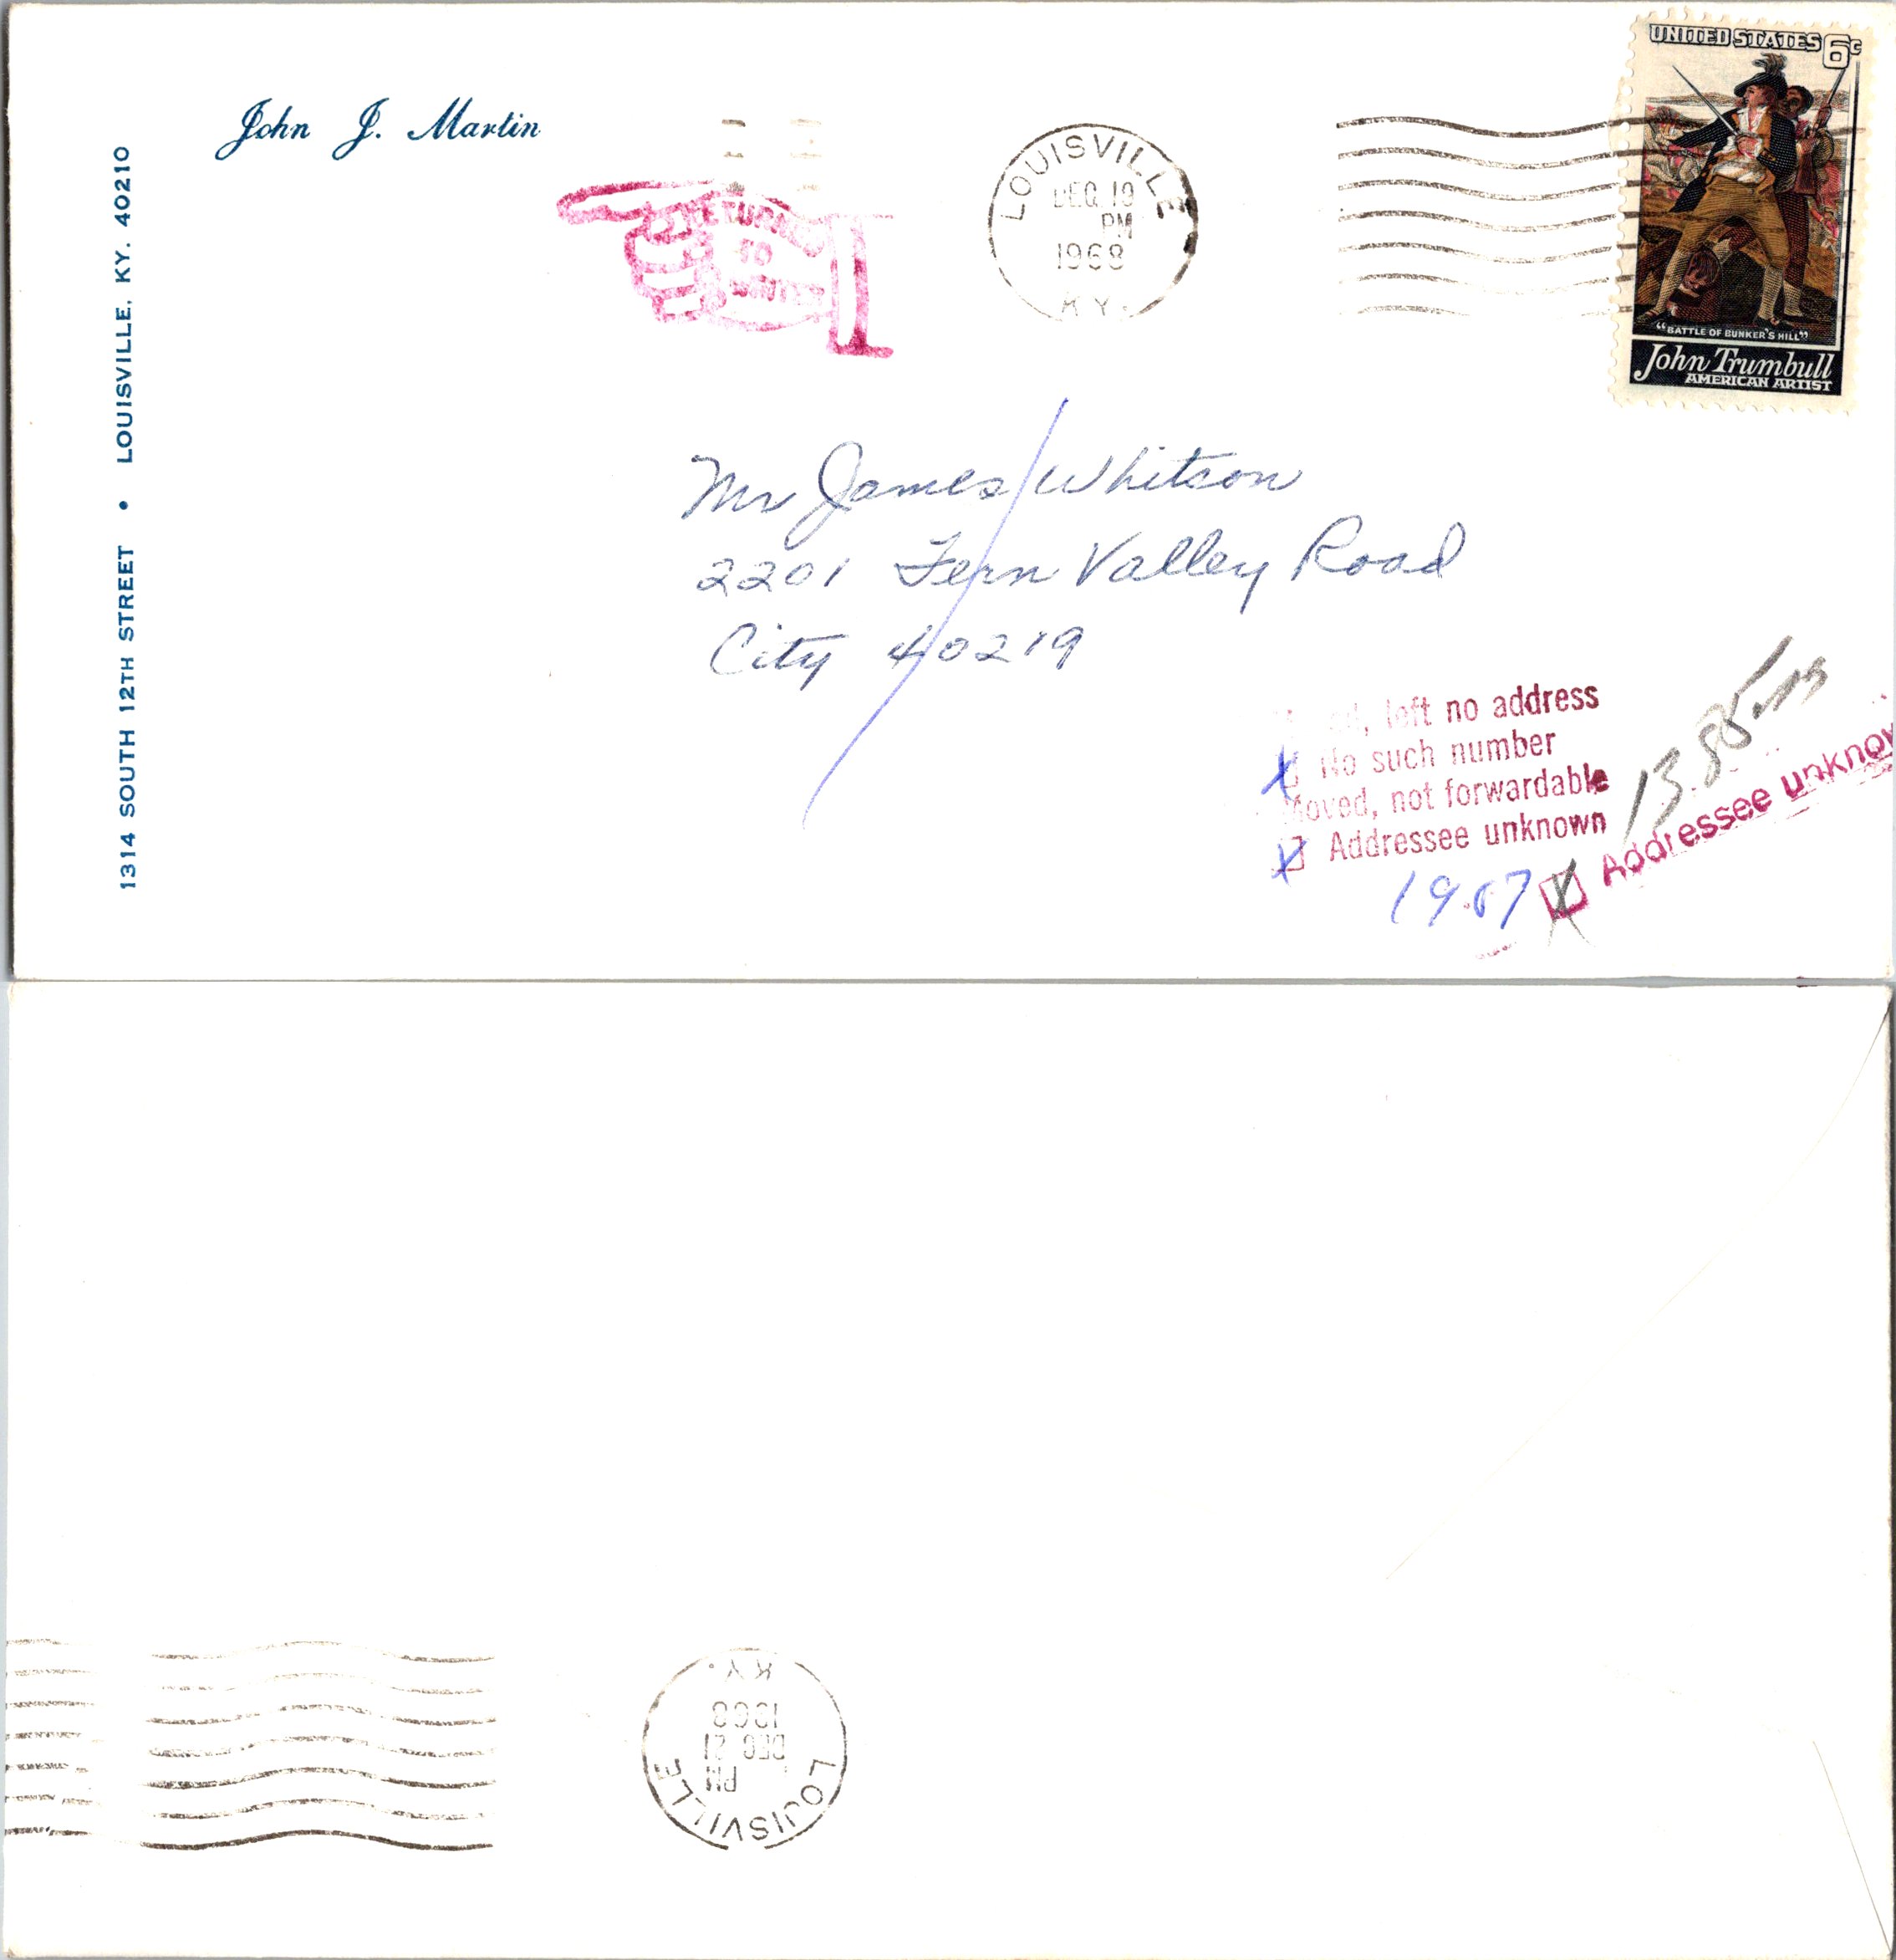 John J. Martin
1314 SOUTH 12TH STREET • LOUISVILLE, KY. 40210
RETURNED
TO
WRITER
LOUISVILLE
DEC 19
PM
1968
KY.
UNITED STATES 6c
"BATTLE OF BUNKER'S HILL"
John Trumbull
AMERICAN ARTIST
Mr James Whitson
2201 Fern Valley Road
City 40219
left no address
No such number
Moved, not forwardable
Addressee unknown
1907
Addressee unknow
LOUISVILLE
PM
DEC 21
1968
KY.